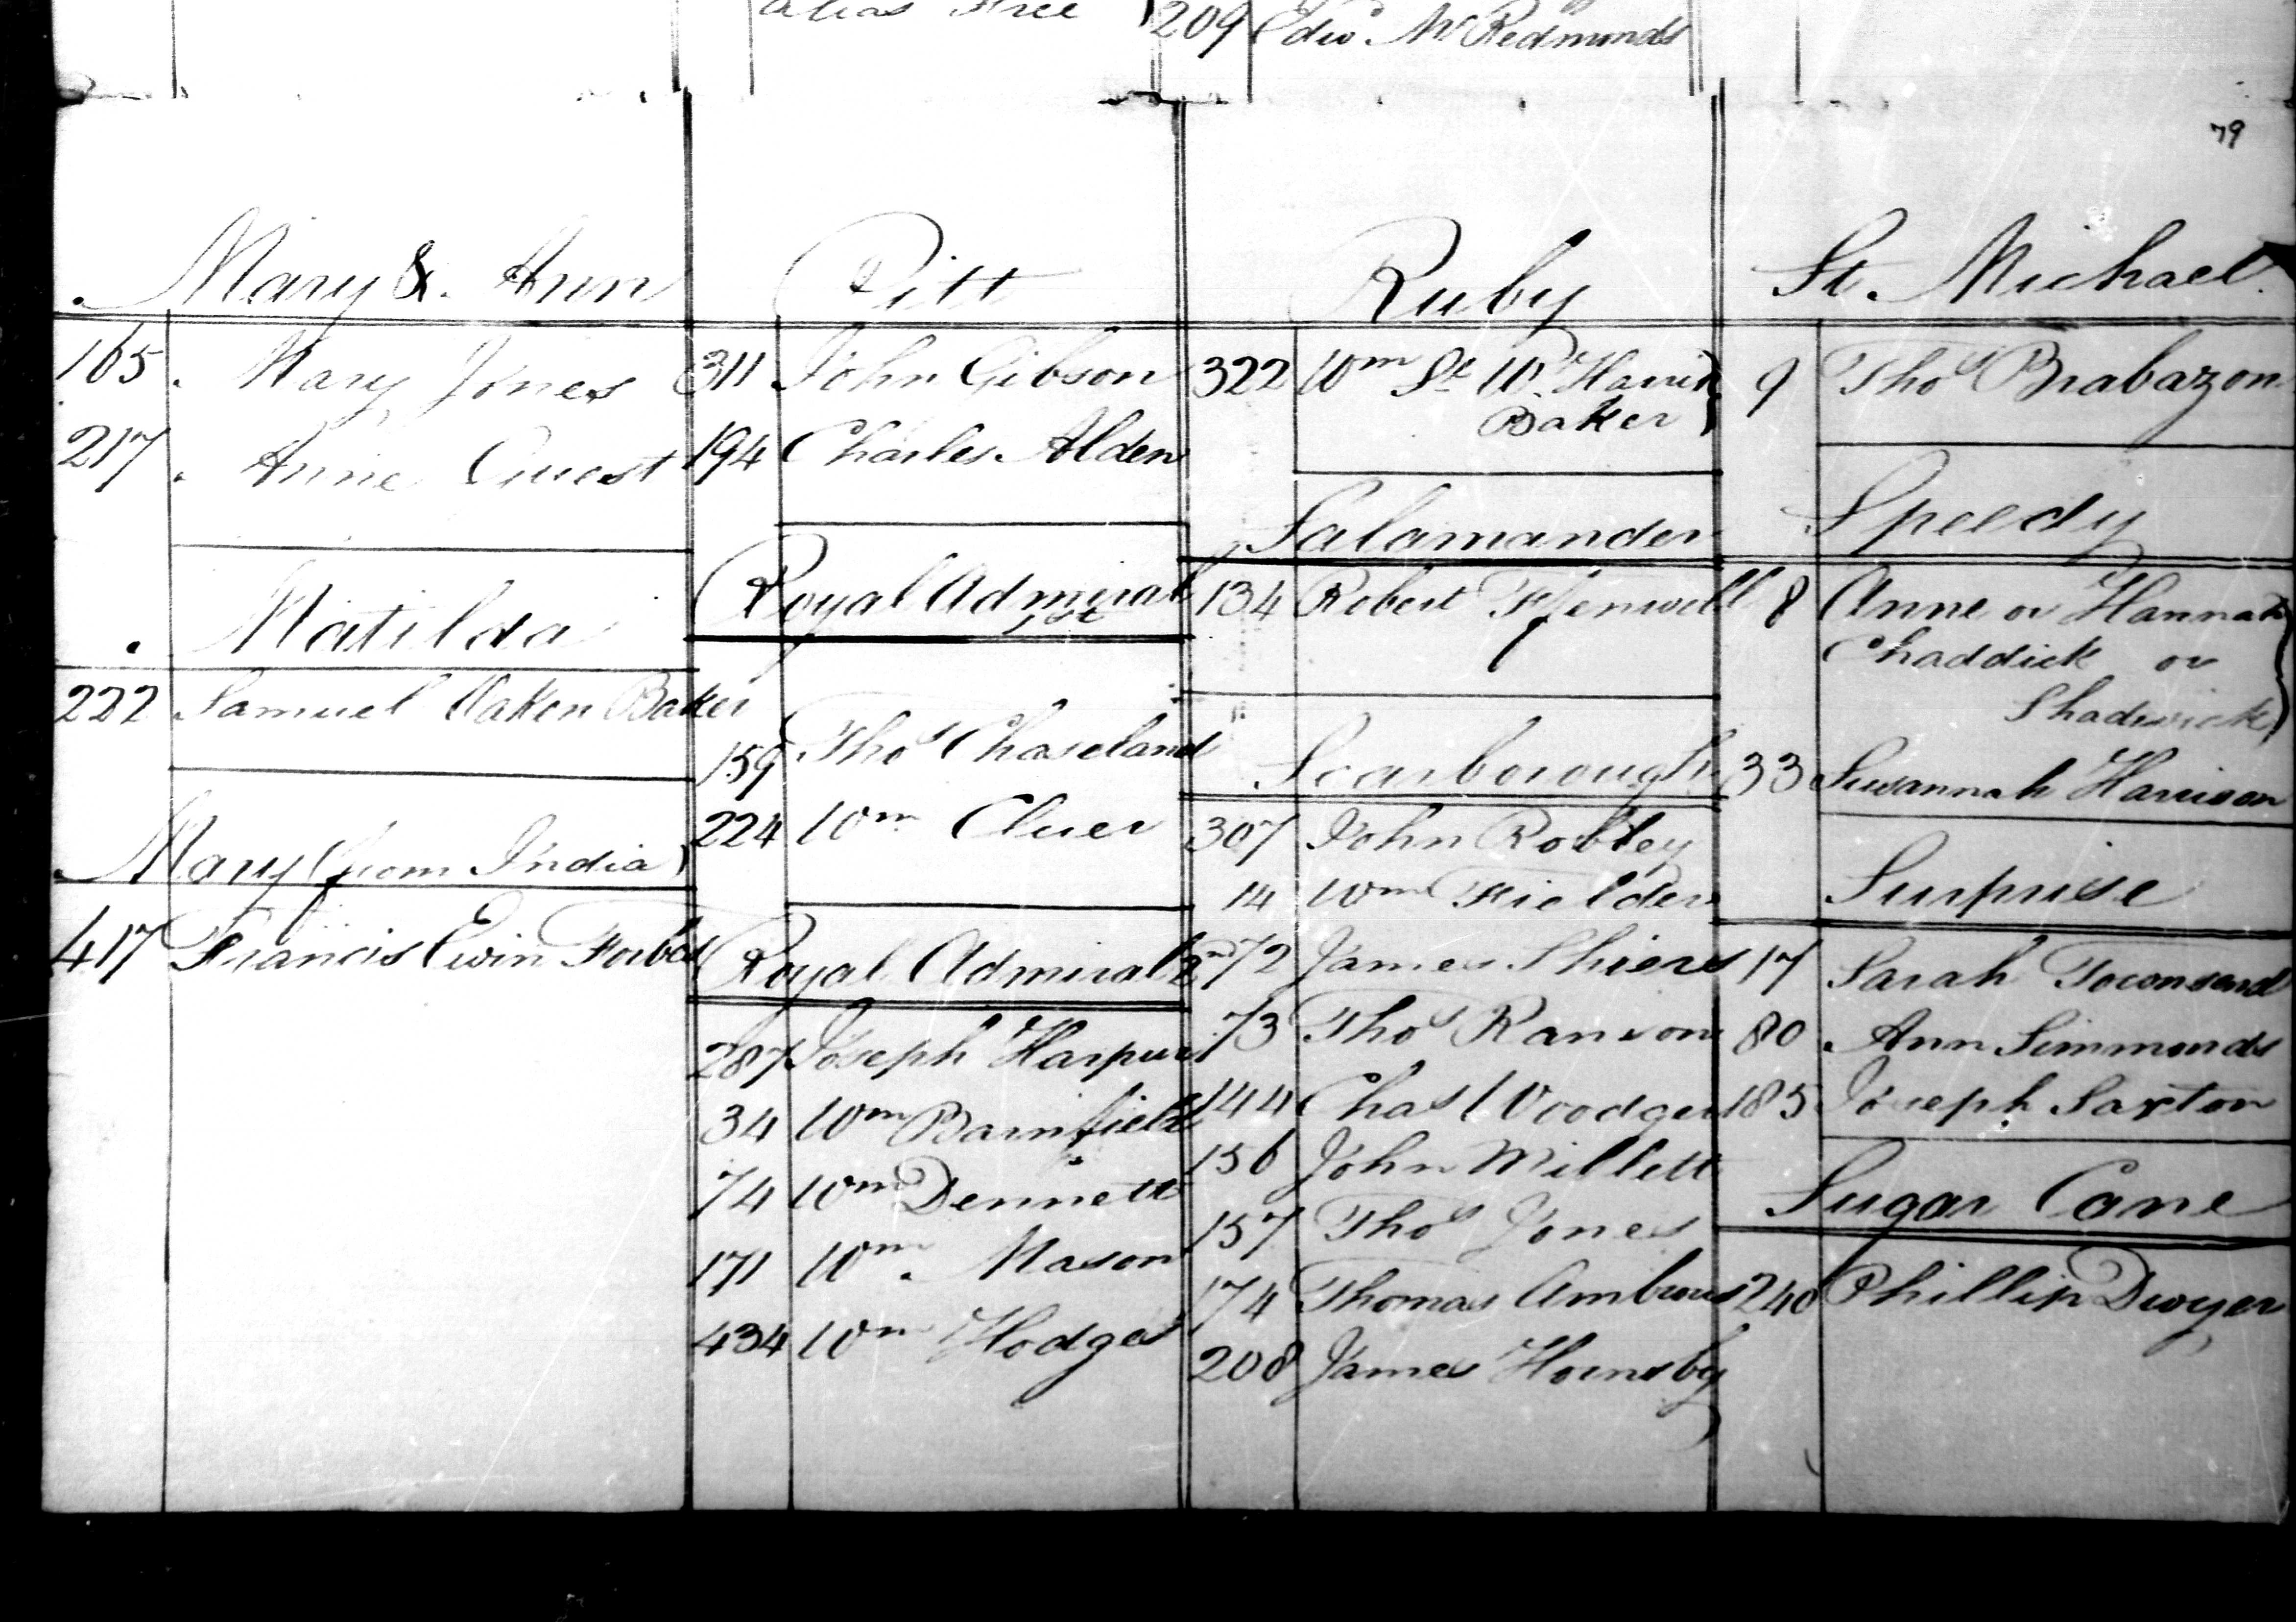 alias Free
209 Edwd. McRedmonds
79
Mary & Ann
165 Mary Jones
217 Anne Guest
Matilda
222 Samuel Oaken Baker
Mary (from India)
417 Francis Ewin Forbes
Pitt
311 John Gibson
194 Charles Alden
Royal Admiral
1st
159 Thos Chaseland
224 Wm Cluer
Royal Admiral 2nd
287 Joseph Harpur
34 Wm Barnfield
74 Wm Dennett
171 Wm. Mason
434 Wm Hodges
Ruby
322 Wm St. W. Harris
Baker
Salamander
134 Robert
Scarborough
307 John Robley
14 Wm Fielder
72 James Shiers
73 Thos Ransom
144 Chas Woodger
156 John Millett
157 Thos Jones
174 Thomas Ambrus
208 James Hornsby
St. Michael
9 Thos Brabazon
Speedy
8 Anne or Hannah
Chaddick or
Shadwick
33 Susannah Harrison
Surprise
17 Sarah Townsend
80 Ann Simmonds
185 Joseph Saxton
Sugar Cane
240 Phillip Dwyer